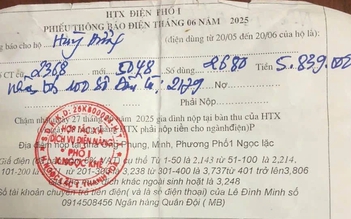 HTX ĐIỆN PHỐ I
PHIẾU THÔNG BÁO ĐIỆN THÁNG 06 NĂM 2025
báo cho hộ Hùng (điện dùng từ 20/05 đến 20/06 của hộ là):
CT cũ 2368 mới 5048 Số dùng 2680 Tiền 5.839.000
100 số 2179
Phải Nộp
Chậm nhất ngày 27 tháng năm 2025 gia đình nộp tại bản thu của HTX
HTX phải nộp tiền cho ngành điện)P
Địa điểm họp Minh, Phương Phố1 Ngọc lặc
Giá điện cụ thể Từ 1-50 là 2,143 từ 51-100 là 2,214,
201-300 3,238 từ 301-400 là 3,737 từ 401 trở lên 3,806
khác ngoài sinh hoạt là 3,248
Số tài khoản chuyển trả tiền điện (và là số điện thoại) của Lê Đình Minh số
0914508456 Ngân hàng Quân Đội ( MB)
HỢP TÁC XÃ
DỊCH VỤ ĐIỆN NĂNG
PHỐ I
X.NGỌC KHÊ